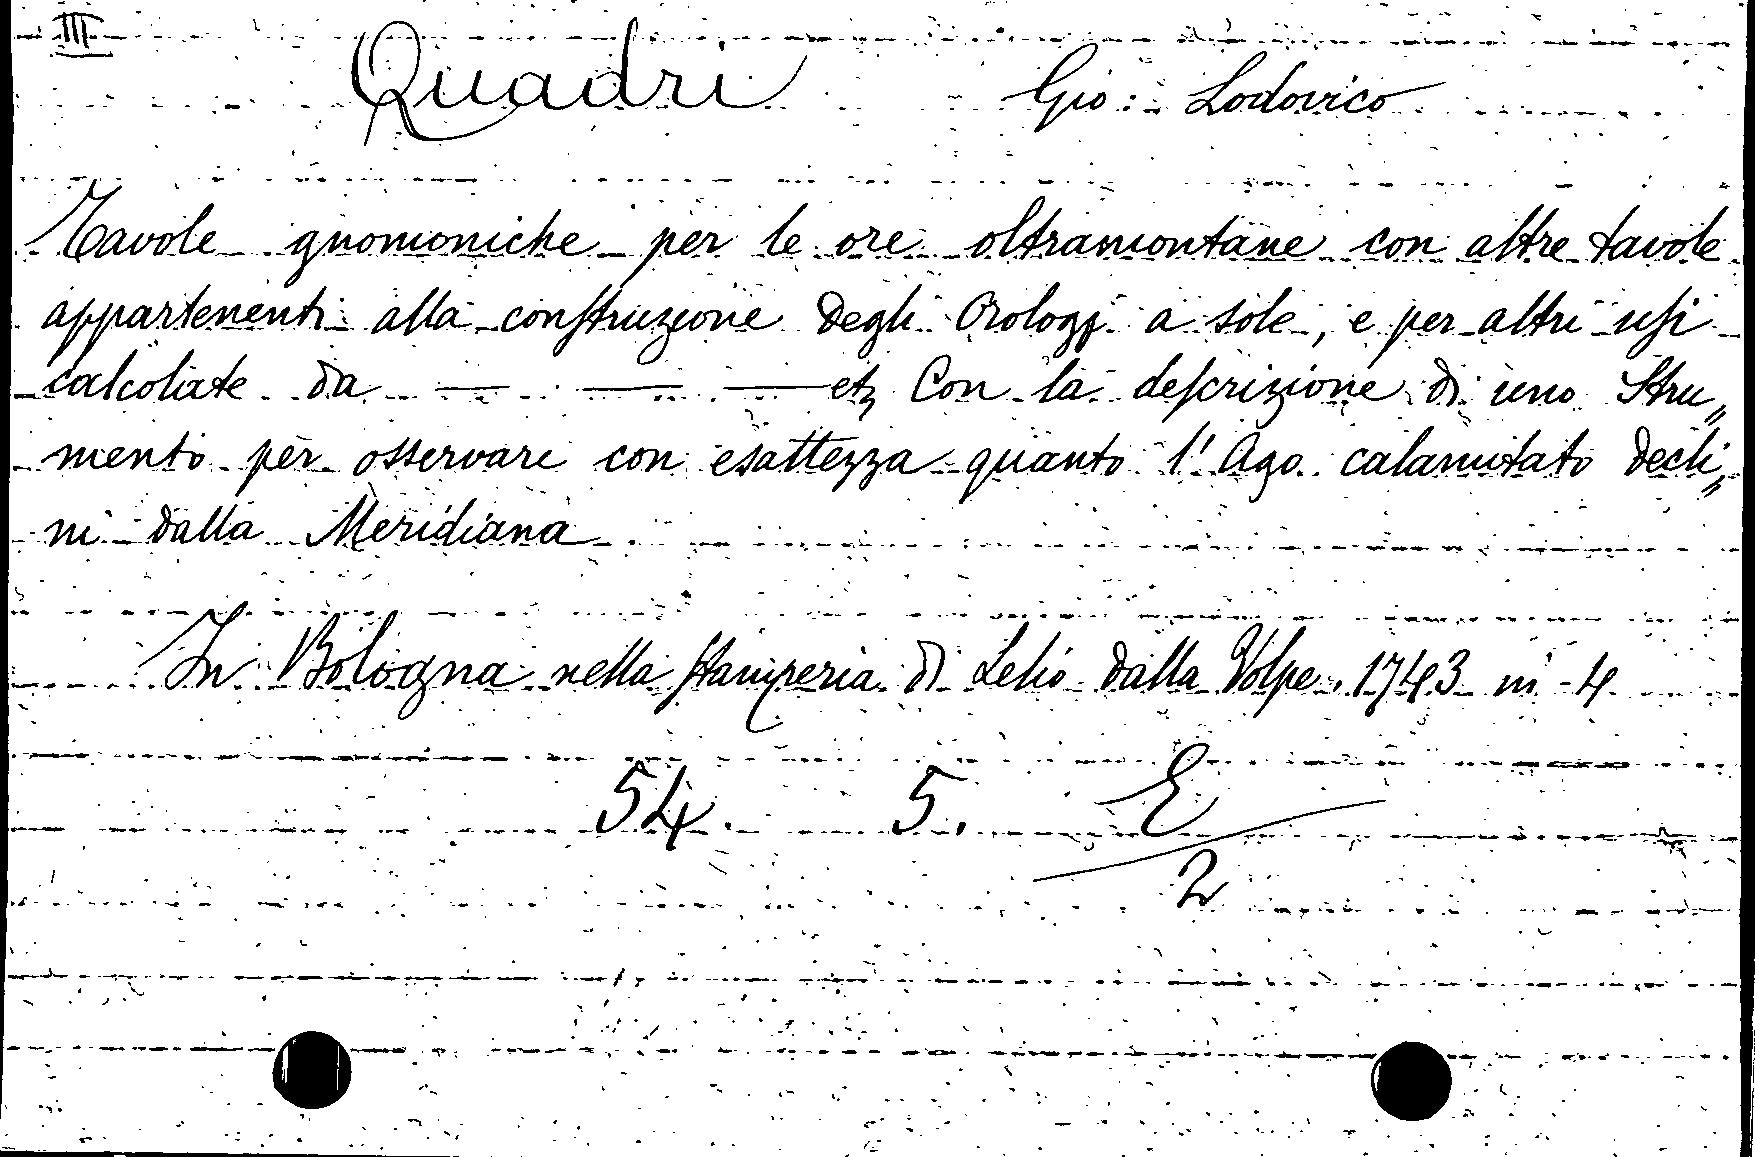 III
Quadri Gio: Lodovico
Tavole gnomoniche per le ore oltramontane con altre tavole
appartenenti alla conſtruzione degli Orologj a sole, e per altri uſi
calcolate da — — — etz Con la deſcrizione di uno Stru„
mento per osservare con esattezza quanto l'Ago calamitato decli„
ni dalla Meridiana
In Bologna nella ſtamperia di Lelio dalla Volpe. 1743 in 4
54. 5. E
2